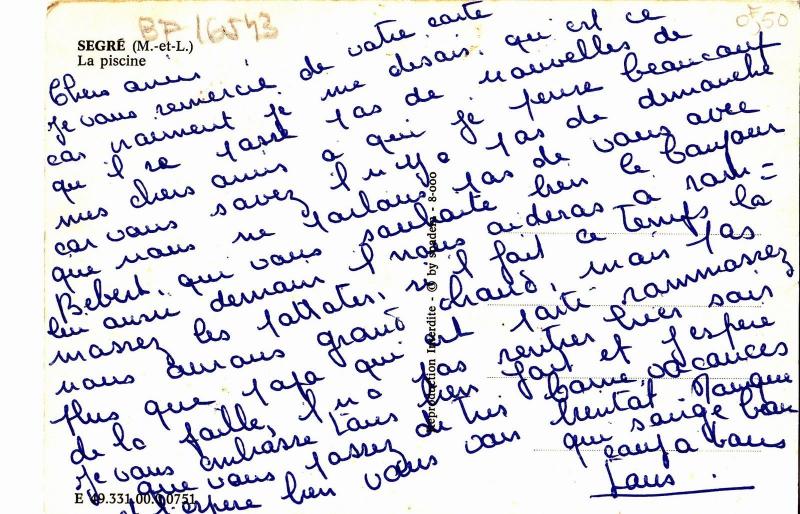 BP 16543
0F50
SEGRÉ (M.-et-L.)
La piscine
Chers amis
je vous remercie de votre carte
car vraiment je me desais, qui est ce
qu il se passe pas de nouvelles de
mes chers amis a qui je pense beaucoup
car vous savez l n y a pas de dimanche
que nous ne parlons pas de vous avec
Bebert, qui vous souhaite bien le bonjour
lui aussi demain l nous aideras a ram=
massez les pattates, si il fait ce temps la
nous aurons grand chaud, mais pas
plus que papa qui est parti rammassez
de la paille, l n a pas rentrer hier soir
je vous embrasse tous bien fort et j'espere
que vous passez de tres bonne vacances
et j'espere bien vous voir bientot Monique
qui songe beau
coup a vous
Tous.
Reproduction Interdite - © by spadem - 8-000
E 49.331.00.0.0751